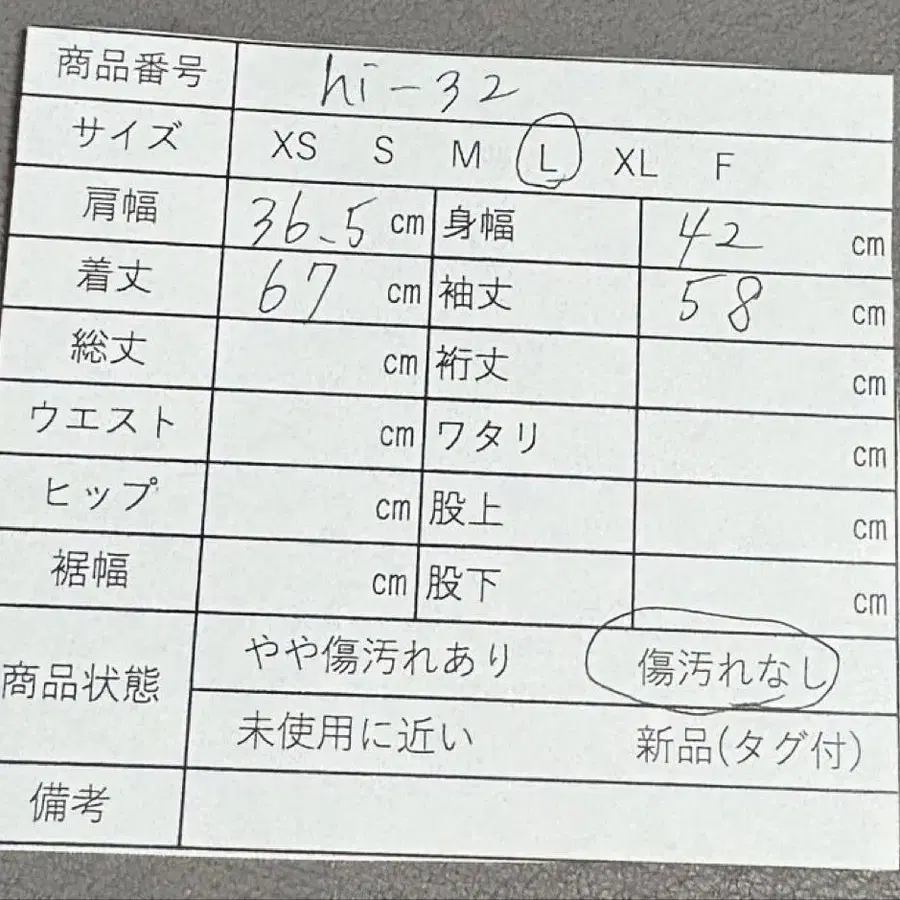 商品番号 hi-32
サイズ XS S M L XL F
肩幅 36.5 cm 身幅 42 cm
着丈 67 cm 袖丈 58 cm
総丈 cm 裄丈 cm
ウエスト cm ワタリ cm
ヒップ cm 股上 cm
裾幅 cm 股下 cm
商品状態 やや傷汚れあり 傷汚れなし
未使用に近い 新品(タグ付)
備考